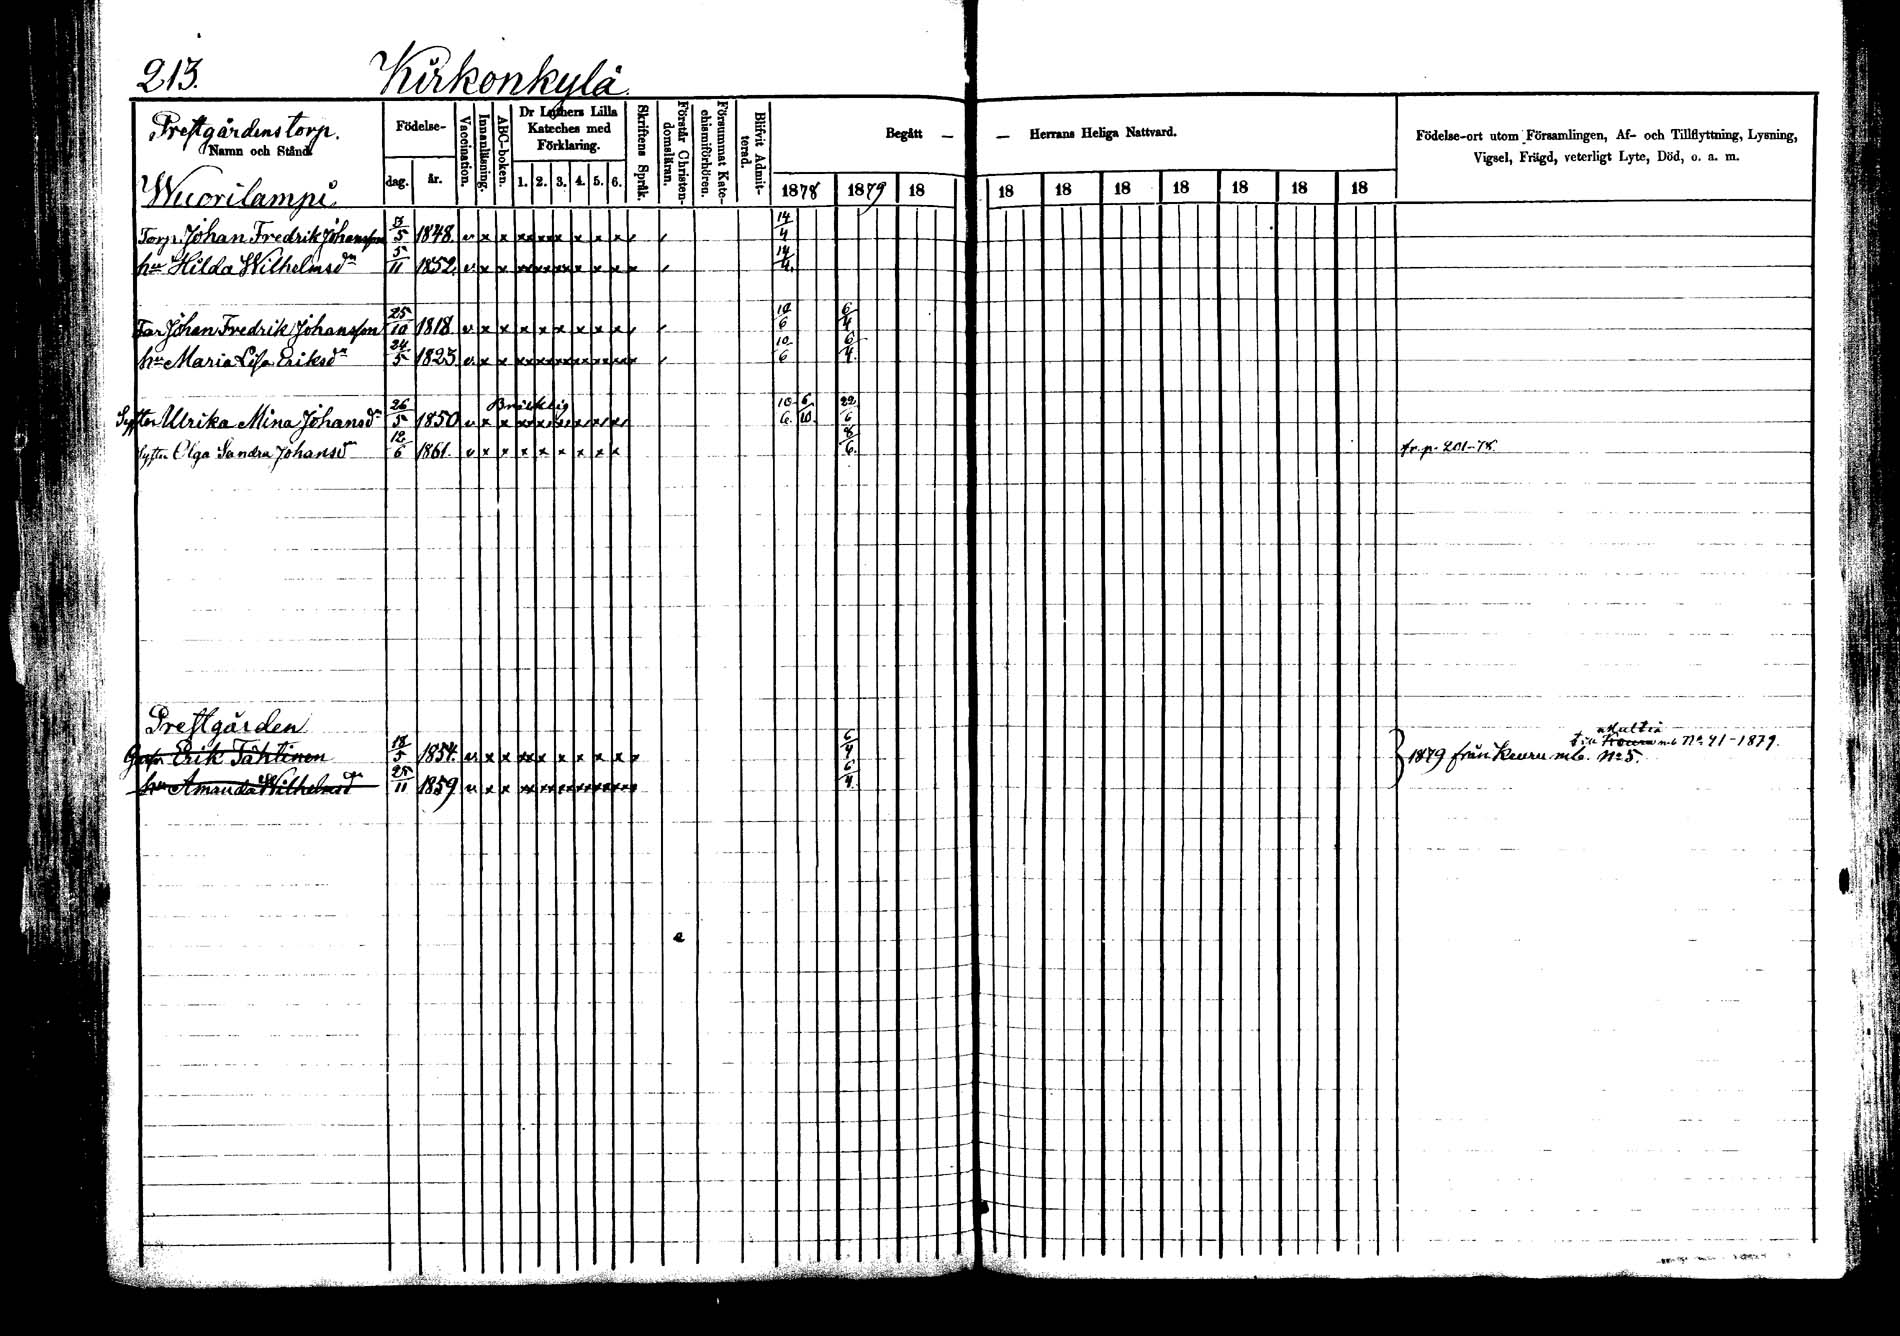 213.
Kirkonkylä.
Prestgårdens torp.
Namn och Stånd.
Wuorilampi
Födelse-
dag.
år.
Vaccination.
Innanläsning.
ABC-boken.
Dr Luthers Lilla
Kateches med
Förklaring.
1. 2. 3. 4. 5. 6.
Skriftens Språk.
Förstår Christen-
domsläran.
Försummat Kate-
chismiförhören.
Blifvit Admit-
terad.
Begått —
— Herrans Heliga Nattvard.
1878 1879 18 18 18 18 18 18 18 18
Födelse-ort utom Församlingen, Af- och Tillflyttning, Lysning,
Vigsel, Frägd, veterligt Lyte, Död, o. a. m.
Torp. Johan Fredrik Johansson 5 1848. v x x x x x x x x x 14/4
hu Hilda Wilhelmsdr 5/11 1852. v x x x x x x x x x 14/4.
Far Johan Fredrik Johansson 25/10 1818. v x x x x x x x x 10/6 6/4
hu Maria Lisa Eriksdr 24/5 1825 v x x x x x x x x x 10/6 6/4.
Bräcklig
Syster Ulrika Mina Johansdr 26/5 1850 v x x x x x x x x 10/6. 6/10. 22/6
Syster Olga Sandra Johansdr 12/6 1861. v x x x x x x x x 8/6. fr. p. 201-78.
Prestgården
Erik Tähtinen 18/5 1854. v x x x x x x x x x 6/4
hu Amanda Wilhelmsdr 25/11 1859 v x x x x x x x x x 6/4.
Multia
till Keuru mb No 41-1879.
1879 från Keuru mb. No 5.